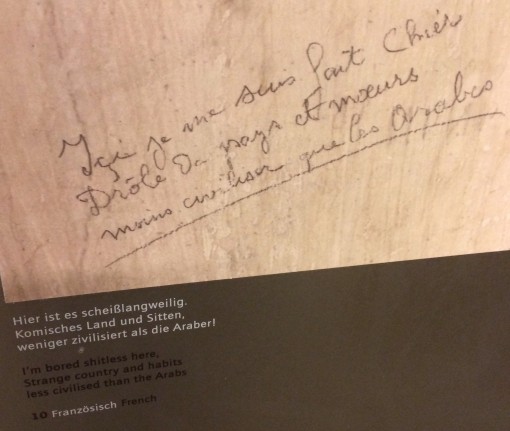 Içi je me suis fait chiér
Drôle de pays et mœurs
moins civiliser que les Arabes
Hier ist es scheißlangweilig.
Komisches Land und Sitten,
weniger zivilisiert als die Araber!
I'm bored shitless here,
Strange country and habits
less civilised than the Arabs
10 Französisch French